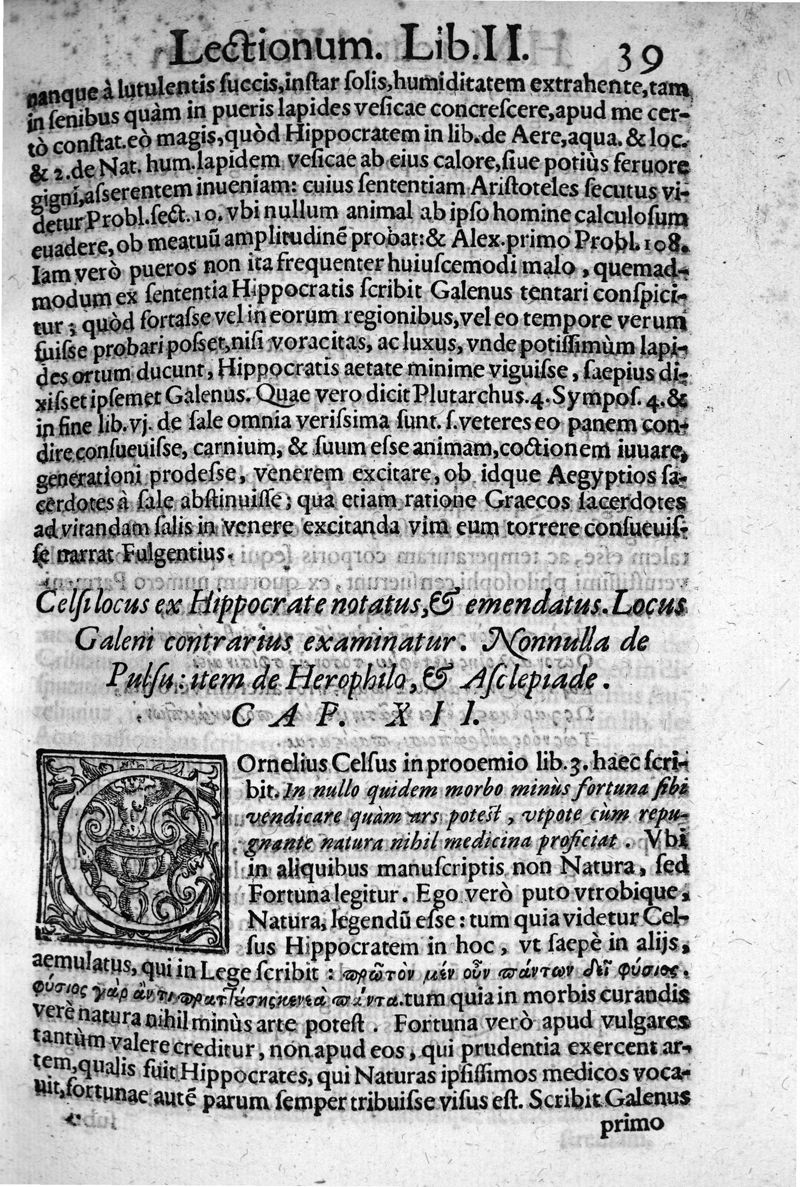 Lectionum. Lib. II. 39
nanque à lutulentis ſuccis, inſtar ſolis, humiditatem extrahente, tam
in ſenibus quàm in pueris lapides veſicae concreſcere, apud me cer-
tò conſtat. eò magis, quòd Hippocratem in lib. de Aere, aqua. & loc.
& 2. de Nat. hum. lapidem veſicae ab eius calore, ſiue potiùs feruore
gigni, aſserentem inueniam: cuius ſententiam Ariſtoteles ſecutus vi-
detur Probl. ſect. 10. vbi nullum animal ab ipſo homine calculoſum
euadere, ob meatuũ amplitudinẽ probat: & Alex. primo Probl. 108.
Iam verò pueros non ita frequenter huiuſcemodi malo, quemad-
modum ex ſententia Hippocratis ſcribit Galenus tentari conſpici-
tur; quòd fortaſse vel in eorum regionibus, vel eo tempore verum
fuiſse probari poſset, niſi voracitas, ac luxus, vnde potiſſimùm lapi-
des ortum ducunt, Hippocratis aetate minime viguiſse, ſaepius di-
xiſset ipſemet Galenus. Quae vero dicit Plutarchus. 4. Sympoſ. 4. &
in fine lib. vj. de ſale omnia veriſſima ſunt. ſ. veteres eo panem con-
dire conſueuiſse, carnium, & ſuum eſse animam, coctionem iuuare,
generationi prodeſse, venerem excitare, ob idque Aegyptios ſa-
cerdotes à ſale abſtinuiſſe; qua etiam ratione Graecos ſacerdotes
ad vitandam ſalis in venere excitanda vim eum torrere conſueuiſ-
ſe narrat Fulgentius.
Celſi locus ex Hippocrate notatus, & emendatus. Locus
Galeni contrarius examinatur. Nonnulla de
Pulſu: item de Herophilo, & Aſclepiade.
CAP. XII.
COrnelius Celſus in prooemio lib. 3. haec ſcri-
bit. In nullo quidem morbo minùs fortuna ſibi
vendicare quàm ars poteſt, vtpote cùm repu-
gnante natura nihil medicina proficiat. Vbi
in aliquibus manuſcriptis non Natura, ſed
Fortuna legitur. Ego verò puto vtrobique,
Natura, legendũ eſse: tum quia videtur Cel-
ſus Hippocratem in hoc, vt ſaepè in alijs,
aemulatus, qui in Lege ſcribit: πρῶτον μέν οὖν πάντων δεῖ φύσιος.
φύσιος γὰρ ἀντιπρατ]ούσης κενεὰ πάντα. tum quia in morbis curandis
verè natura nihil minùs arte poteſt. Fortuna verò apud vulgares
tantùm valere creditur, non apud eos, qui prudentia exercent ar-
tem, qualis fuit Hippocrates, qui Naturas ipſiſſimos medicos voca-
uit, fortunae autẽ parum ſemper tribuiſse viſus eſt. Scribit Galenus
primo